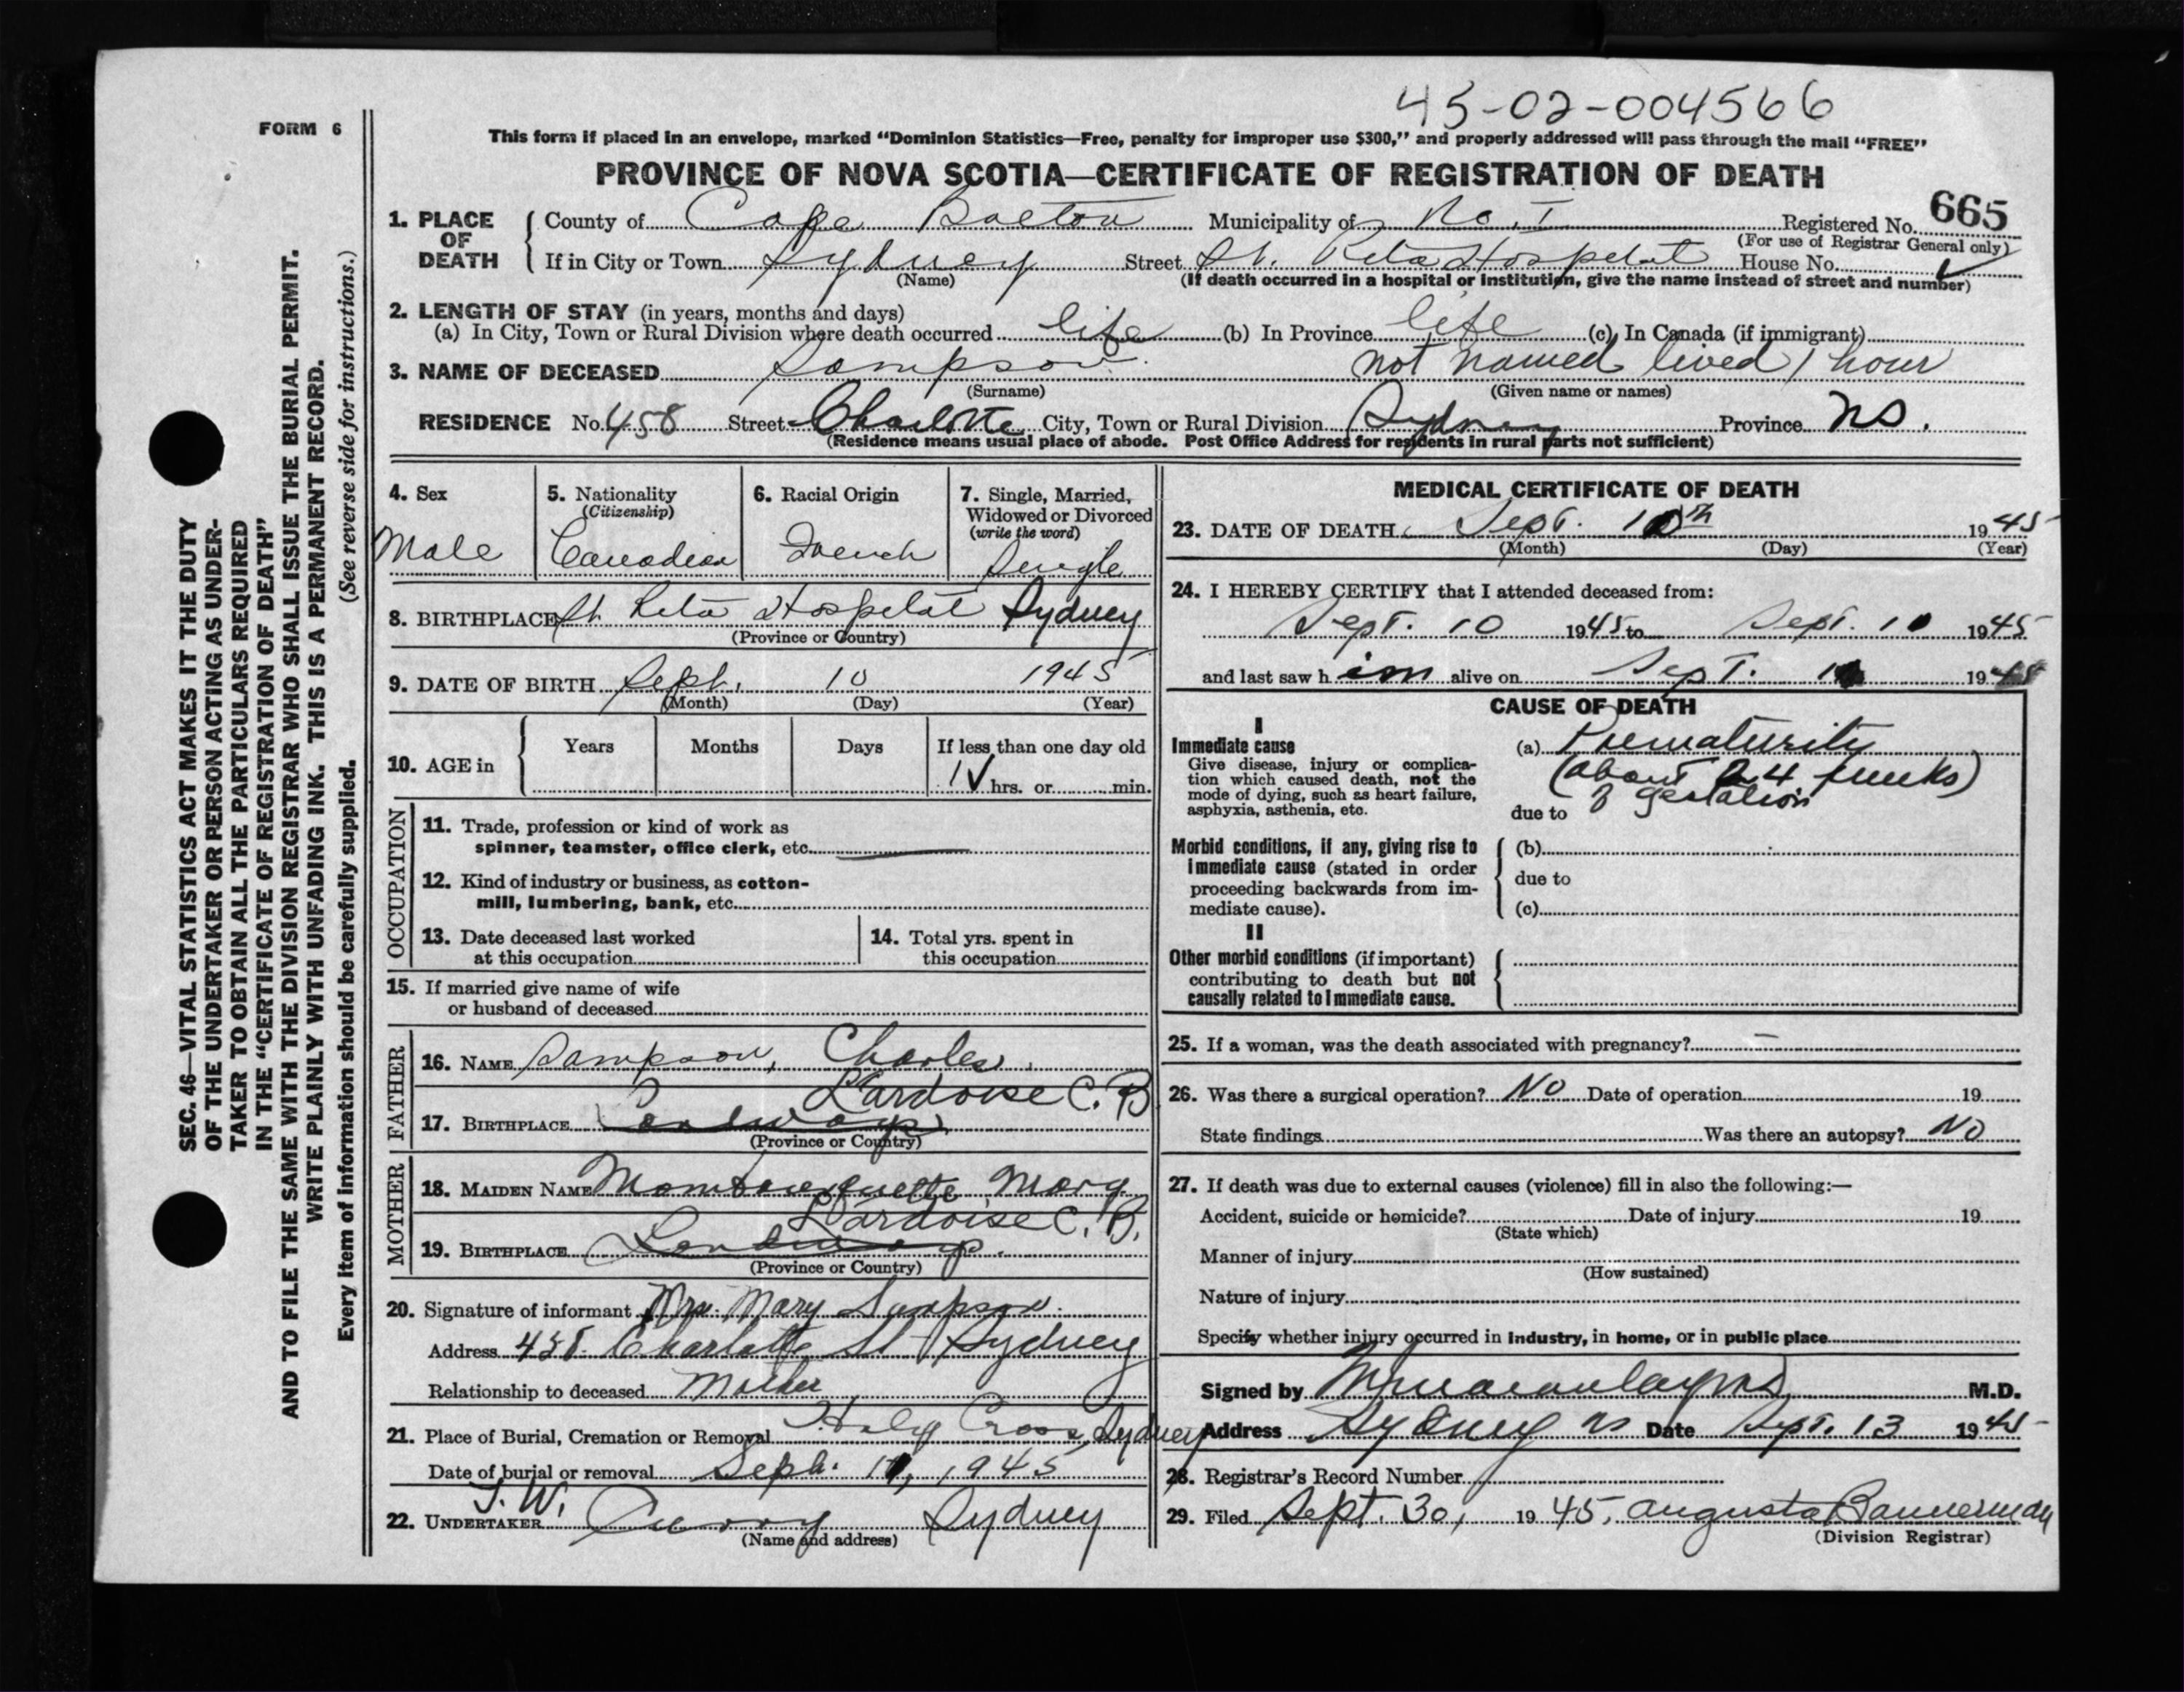 45-02-004566
FORM 6
This form if placed in an envelope, marked “Dominion Statistics—Free, penalty for improper use $300,” and properly addressed will pass through the mail “FREE”
PROVINCE OF NOVA SCOTIA—CERTIFICATE OF REGISTRATION OF DEATH
1. PLACE OF DEATH
County of Cape Breton Municipality of No. 1 Registered No. 665
(For use of Registrar General only)
If in City or Town Sydney Street St. Rita Hospital House No.
(Name) (If death occurred in a hospital or institution, give the name instead of street and number)
2. LENGTH OF STAY (in years, months and days)
(a) In City, Town or Rural Division where death occurred life (b) In Province life (c) In Canada (if immigrant)
3. NAME OF DECEASED Sampson not named lived 1 hour
(Surname) (Given name or names)
RESIDENCE No. 458 Street Charlotte City, Town or Rural Division Sydney Province NS.
(Residence means usual place of abode. Post Office Address for residents in rural parts not sufficient)
4. Sex
Male
5. Nationality
(Citizenship)
Canadian
6. Racial Origin
French
7. Single, Married,
Widowed or Divorced
(write the word)
Single
8. BIRTHPLACE St. Rita Hospital Sydney
(Province or Country)
9. DATE OF BIRTH Sept. 10 1945
(Month) (Day) (Year)
10. AGE in
Years Months Days If less than one day old
1 hrs. or min.
OCCUPATION
11. Trade, profession or kind of work as
spinner, teamster, office clerk, etc.
12. Kind of industry or business, as cotton-
mill, lumbering, bank, etc.
13. Date deceased last worked
at this occupation
14. Total yrs. spent in
this occupation
15. If married give name of wife
or husband of deceased
FATHER
16. NAME Sampson, Charles
L'ardoise C. B
17. BIRTHPLACE
(Province or Country)
MOTHER
18. MAIDEN NAME Mombourquette, Mary
L'ardoise C. B.
19. BIRTHPLACE
(Province or Country)
20. Signature of informant Mrs. Mary Sampson
Address 458 Charlotte St Sydney
Relationship to deceased Mother
21. Place of Burial, Cremation or Removal Holy Cross, Sydney
Date of burial or removal Sept. 11, 1945
22. UNDERTAKER T. W. Curry Sydney
(Name and address)
MEDICAL CERTIFICATE OF DEATH
23. DATE OF DEATH Sept. 10th 1945
(Month) (Day) (Year)
24. I HEREBY CERTIFY that I attended deceased from:
Sept. 10 1945 to Sept. 10 1945
and last saw h im alive on Sept. 10 1945
CAUSE OF DEATH
I
Immediate cause
Give disease, injury or complica-
tion which caused death, not the
mode of dying, such as heart failure,
asphyxia, asthenia, etc.
(a) Prematurity
(about 24 weeks)
of gestation
due to
Morbid conditions, if any, giving rise to
immediate cause (stated in order
proceeding backwards from im-
mediate cause).
(b)
due to
(c)
II
Other morbid conditions (if important)
contributing to death but not
causally related to immediate cause.
25. If a woman, was the death associated with pregnancy? —
26. Was there a surgical operation? No Date of operation 19
State findings Was there an autopsy? No
27. If death was due to external causes (violence) fill in also the following:—
Accident, suicide or homicide? Date of injury 19
(State which)
Manner of injury
(How sustained)
Nature of injury
Specify whether injury occurred in industry, in home, or in public place
Signed by M.D.
Address Sydney NS Date Sept. 13 1945
28. Registrar's Record Number
29. Filed Sept. 30, 1945, Augusta Bannerman
(Division Registrar)
SEC. 46—VITAL STATISTICS ACT MAKES IT THE DUTY
OF THE UNDERTAKER OR PERSON ACTING AS UNDER-
TAKER TO OBTAIN ALL THE PARTICULARS REQUIRED
IN THE “CERTIFICATE OF REGISTRATION OF DEATH”
AND TO FILE THE SAME WITH THE DIVISION REGISTRAR WHO SHALL ISSUE THE BURIAL PERMIT.
WRITE PLAINLY WITH UNFADING INK. THIS IS A PERMANENT RECORD.
Every item of information should be carefully supplied. (See reverse side for instructions.)